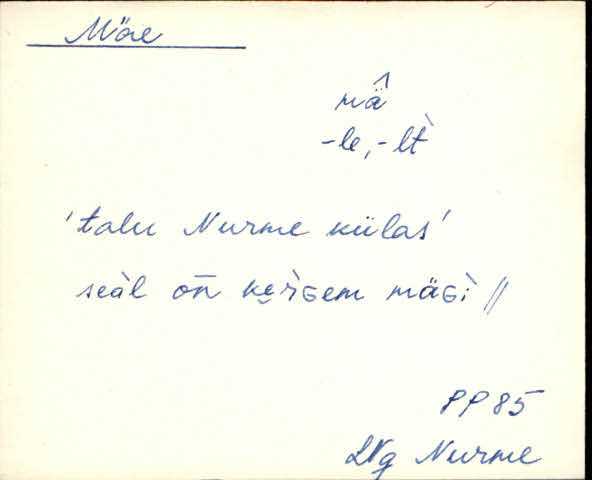 Mäe
mä̂
-le, -lt̀
'talu Nurme külas'
seàl on̄ ke̮r̀ɢem mäɢì //
PP 85
LNg Nurme